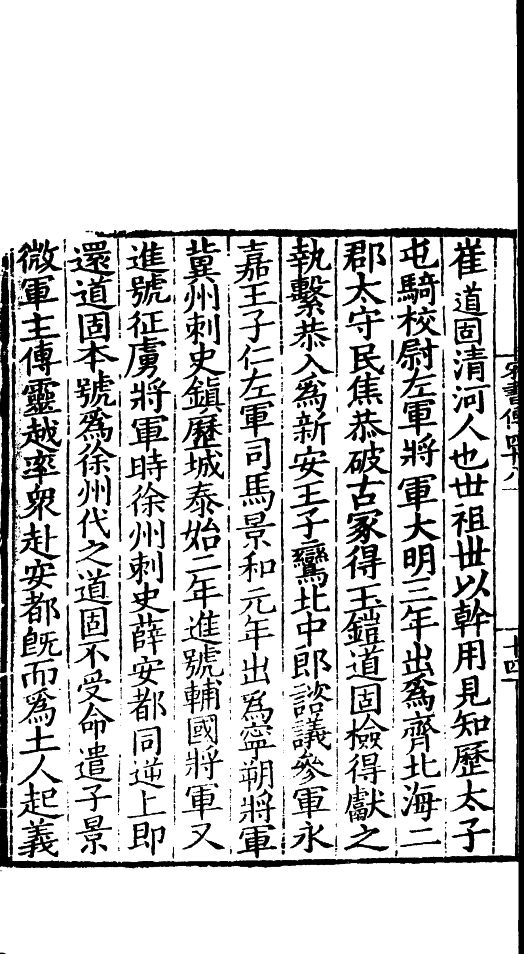 崔道固清河人也世祖世以幹用見知歷太子
屯騎校尉左軍將軍大明三年出爲齊北海二
郡太守民焦恭破古冢得玉鎧道固檢得獻之
執繫恭入爲新安王子鸞北中郎諮議參軍永
嘉王子仁左軍司馬景和元年出爲寧朔將軍
冀州刺史鎮歷城泰始二年進號輔國將軍又
進號征虜將軍時徐州刺史薛安都同逆上即
還道固本號爲徐州代之道固不受命遣子景
微軍主傅靈越率衆赴安都旣而爲土人起義